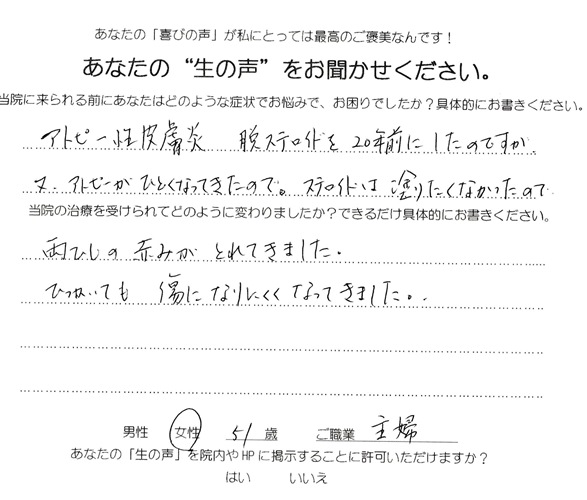 あなたの「喜びの声」が私にとっては最高のご褒美なんです！
あなたの “生の声” をお聞かせください。
当院に来られる前にあなたはどのような症状でお悩みで、お困りでしたか？具体的にお書きください。
アトピー性皮膚炎 脱ステロイドを 20年前にしたのですが、
又、アトピーがひどくなってきたので。ステロイドは塗りたくなかったので
当院の治療を受けられてどのように変わりましたか？できるだけ具体的にお書きください。
両ひじの赤みがとれてきました。
ひっかいても 傷になりにくくなってきました。
男性 女性 51 歳 ご職業 主婦
あなたの「生の声」を院内やHPに掲示することに許可いただけますか？
はい いいえ